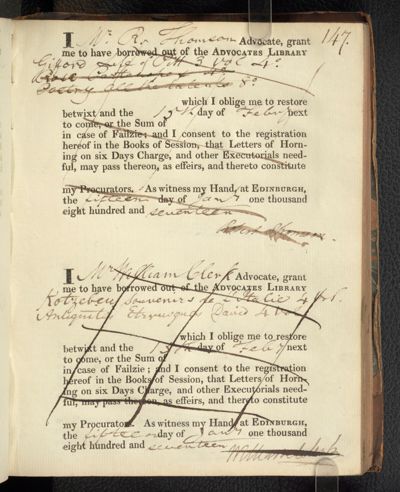 147.
I Mr Rt Thomson Advocate, grant
me to have borrowed out of the ADVOCATES LIBRARY
Gifford Life of Pitt 3 vol 4o.
8o.
which I oblige me to restore
betwixt and the 15th day of Feby next
to come, or the Sum of
in case of Failzie; and I consent to the registration
hereof in the Books of Session, that Letters of Horn-
ing on six Days Charge, and other Executorials need-
ful, may pass thereon, as effeirs, and thereto constitute
my Procurators. As witness my Hand, at EDINBURGH,
the fifteen day of Jany one thousand
eight hundred and seventeen
Robert Thomson
I Mr William Clerk Advocate, grant
me to have borrowed out of the ADVOCATES LIBRARY
Kotzebue Souvenirs de l'Italie 4 vol.
Antiquités Etrusques David 4
which I oblige me to restore
betwixt and the 15th day of Feby next
to come, or the Sum of
in case of Failzie; and I consent to the registration
hereof in the Books of Session, that Letters of Horn-
ing on six Days Charge, and other Executorials need-
ful, may pass thereon, as effeirs, and thereto constitute
my Procurators. As witness my Hand, at EDINBURGH,
the fifteen day of Jany one thousand
eight hundred and seventeen
William Clerk